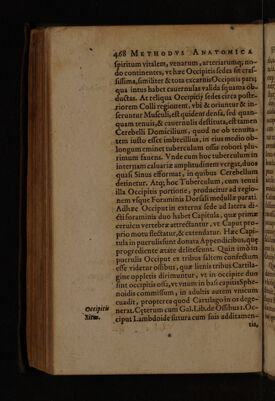 468 METHODVS ANATOMICA
spiritum vitalem, venarum, arteriarumq; no-
do continentes, vt hæc Occipitis sedes sit cras-
sissima, similiter & tota excarnis Occipitis pars
qua intus habet cauernulas valida squama ob-
ductas. At reliqua Occipitij sedes circa poste-
riorem Colli regionem, vbi & oriuntur & in-
seruntur Musculi, est quidem densa, sed quan-
quam tenuis, & cauernulis destituta, est tamen
Cerebelli Domicilium, quod ne ob tenuita-
tem iusto esset imbecillius, in eius medio ob-
longum eminet tuberculum ossis robori plu-
rimum fauens. Vnde cum hoc tuberculum in
internam caluariæ amplitudinem vergat, duos
quasi Sinus efformat, in quibus Cerebellum
detinetur. Atq; hoc Tuberculum, cum tenui
illa Occipitis portione, producitur ad regio-
nem vsque Foraminis Dorsali medullæ parati.
Adhæc Occiput in externa sede ad latera di-
cti foraminis duo habet Capitula, quæ primæ
ceruicis vertebræ attrectantur, vt Caput pro-
prio motu flectatur, & extendatur. Hæc Capi-
tula in puerulis sunt donata Appendicibus, quæ
progrediente ætate delitescunt. Quin imò in
puerulis Occiput ex tribus saltem confectum
osse videtur ossibus, quæ lineis tribus Cartila-
gine oppletis dirimuntur, vt in occipite duo
sint occipitis ossa, vt vnum in basi capitis Sphe-
noidis commissum, in adultis autem vnicum
euadit, propterea quod Cartilago in os dege-
Occipitis
Situs.
nerat. Cęterum cum Gal. Lib. de Ossibus 1. Oc-
ciput Lambdoide sutura cum suis additamen-
tis,